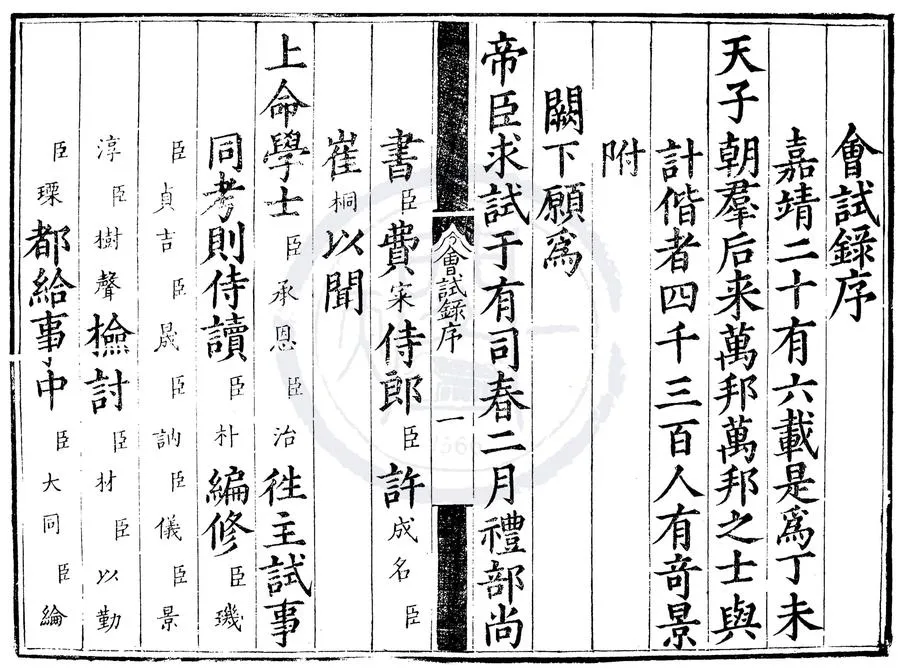 會試錄序
嘉靖二十有六載是爲丁未
天子朝羣后来萬邦萬邦之士與
計偕者四千三百人有竒景
附
闕下願爲
帝臣求試于有司春二月禮部尚
會試錄序 一
書臣費寀侍郎臣許成名臣
崔桐以聞
上命學士臣承恩臣治徃主試事
同考則侍讀臣朴編修臣璣
臣貞吉臣晟臣訥臣儀臣景
淳臣樹聲檢討臣材臣以勤
臣瑮都給事中臣大同臣綸